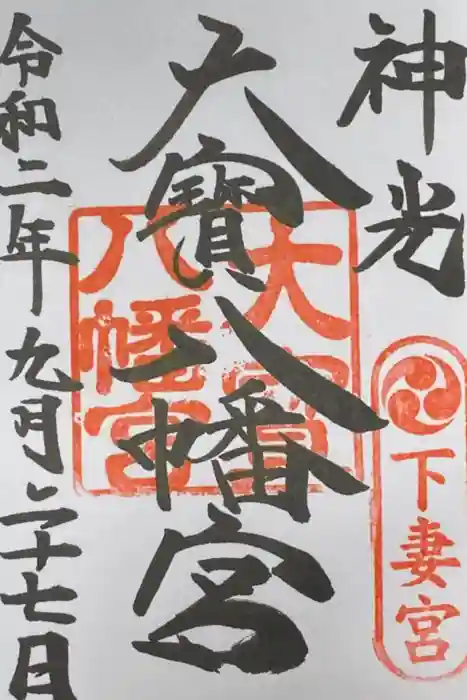 神光
下妻宮
大寶八幡宮
大宝八幡宮
令和二年九月二十七日